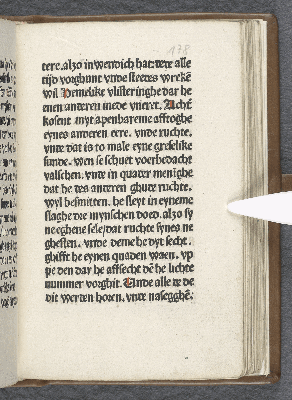 178
tere. alzo inwendich hat: dere alle
tijd vorghunt vnde stetees wreke
wil Hemelike vlisteringhe dar he
enen anderen mede vneret. Achter
kosent myt apenbareme affroghe
eynes anderen eere. vnde ruchte.
vnde dat is to male eyne greselike
sunde. wen se schuet voerbedacht
valschen. vnde in quader meninghe
dat he des anderen ghude ruchte.
wyl besmitten. he sleyt in eyneme
slaghe die mynschen doed. alzo sy
neeghene sele, dat ruchte synes ne
ghesten. vnde deme he dyt secht.
ghifft he eynen quaden waen. vp
pe den dar he affsecht dē he lichte
nummer vorghit. Unde alle de de
dit werden horen. vnde nasegghē: